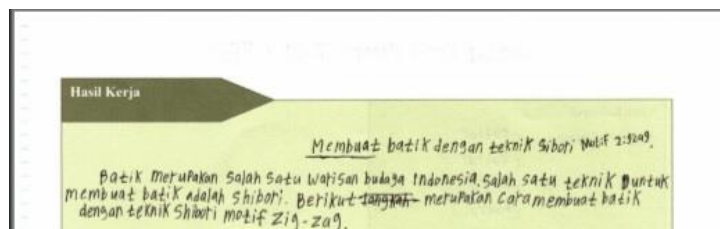 Hasil Kerja
Membuat batik dengan teknik sibori Motif zigzag.
Batik merupakan salah satu warisan budaya Indonesia. salah satu teknik untuk
membuat batik adalah shibori. Berikut merupakan cara membuat batik
dengan teknik shibori motif zig-zag.